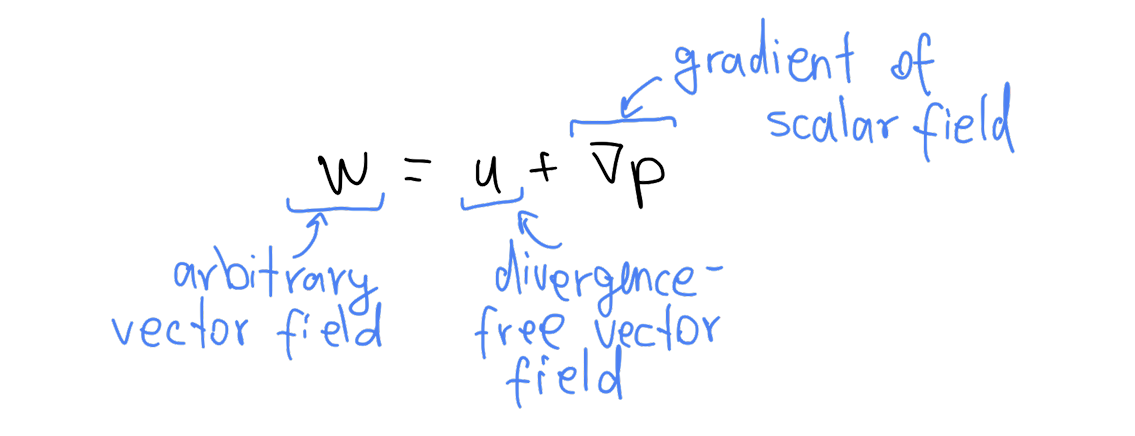 gradient of
scalar field
w = u + ∇p
arbitrary
vector field
divergence-
free vector
field